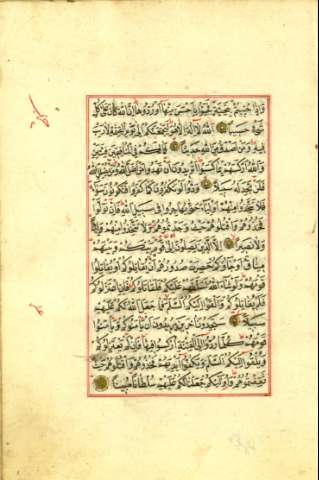 وَإِذَا حُيِّيتُمْ بِتَحِيَّةٍ فَحَيُّوا بِأَحْسَنَ مِنْهَا أَوْ رُدُّوهَا إِنَّ اللَّهَ كَانَ عَلَى كُلِّ
شَيْءٍ حَسِيبًا اللَّهُ لَا إِلَهَ إِلَّا هُوَ لَيَجْمَعَنَّكُمْ إِلَى يَوْمِ الْقِيَمَةِ لَا رَيْبَ
فِيهِ وَمَنْ أَصْدَقُ مِنَ اللَّهِ حَدِيثًا فَمَا لَكُمْ فِي الْمُنَافِقِينَ فِئَتَيْنِ
وَاللَّهُ أَرْكَسَهُمْ بِمَا كَسَبُوا أَتُرِيدُونَ أَنْ تَهْدُوا مَنْ أَضَلَّ اللَّهُ وَمَنْ يُضْلِلِ اللَّهُ
فَلَنْ تَجِدَ لَهُ سَبِيلًا وَدُّوا لَوْ تَكْفُرُونَ كَمَا كَفَرُوا فَتَكُونُونَ سَوَاءً
فَلَا تَتَّخِذُوا مِنْهُمْ أَوْلِيَاءَ حَتَّى يُهَاجِرُوا فِي سَبِيلِ اللَّهِ فَإِنْ تَوَلَّوْا
فَخُذُوهُمْ وَاقْتُلُوهُمْ حَيْثُ وَجَدْتُمُوهُمْ وَلَا تَتَّخِذُوا مِنْهُمْ وَلِيًّا
وَلَا نَصِيرًا إِلَّا الَّذِينَ يَصِلُونَ إِلَى قَوْمٍ بَيْنَكُمْ وَبَيْنَهُمْ
مِيثَاقٌ أَوْ جَاؤُكُمْ حَصِرَتْ صُدُورُهُمْ أَنْ يُقَاتِلُوكُمْ أَوْ يُقَاتِلُوا
قَوْمَهُمْ وَلَوْ شَاءَ اللَّهُ لَسَلَّطَهُمْ عَلَيْكُمْ فَلَقَاتَلُوكُمْ فَإِنِ اعْتَزَلُوكُمْ
فَلَمْ يُقَاتِلُوكُمْ وَأَلْقَوْا إِلَيْكُمُ السَّلَمَ فَمَا جَعَلَ اللَّهُ لَكُمْ عَلَيْهِمْ
سَبِيلًا سَتَجِدُونَ آخَرِينَ يُرِيدُونَ أَنْ يَأْمَنُوكُمْ وَيَأْمَنُوا
قَوْمَهُمْ كُلَّمَا رُدُّوا إِلَى الْفِتْنَةِ أُرْكِسُوا فِيهَا فَإِنْ لَمْ يَعْتَزِلُوكُمْ
وَيُلْقُوا إِلَيْكُمُ السَّلَمَ وَيَكُفُّوا أَيْدِيَهُمْ فَخُذُوهُمْ وَاقْتُلُوهُمْ حَيْثُ
ثَقِفْتُمُوهُمْ وَأُولَئِكُمْ جَعَلْنَا لَكُمْ عَلَيْهِمْ سُلْطَانًا مُبِينًا